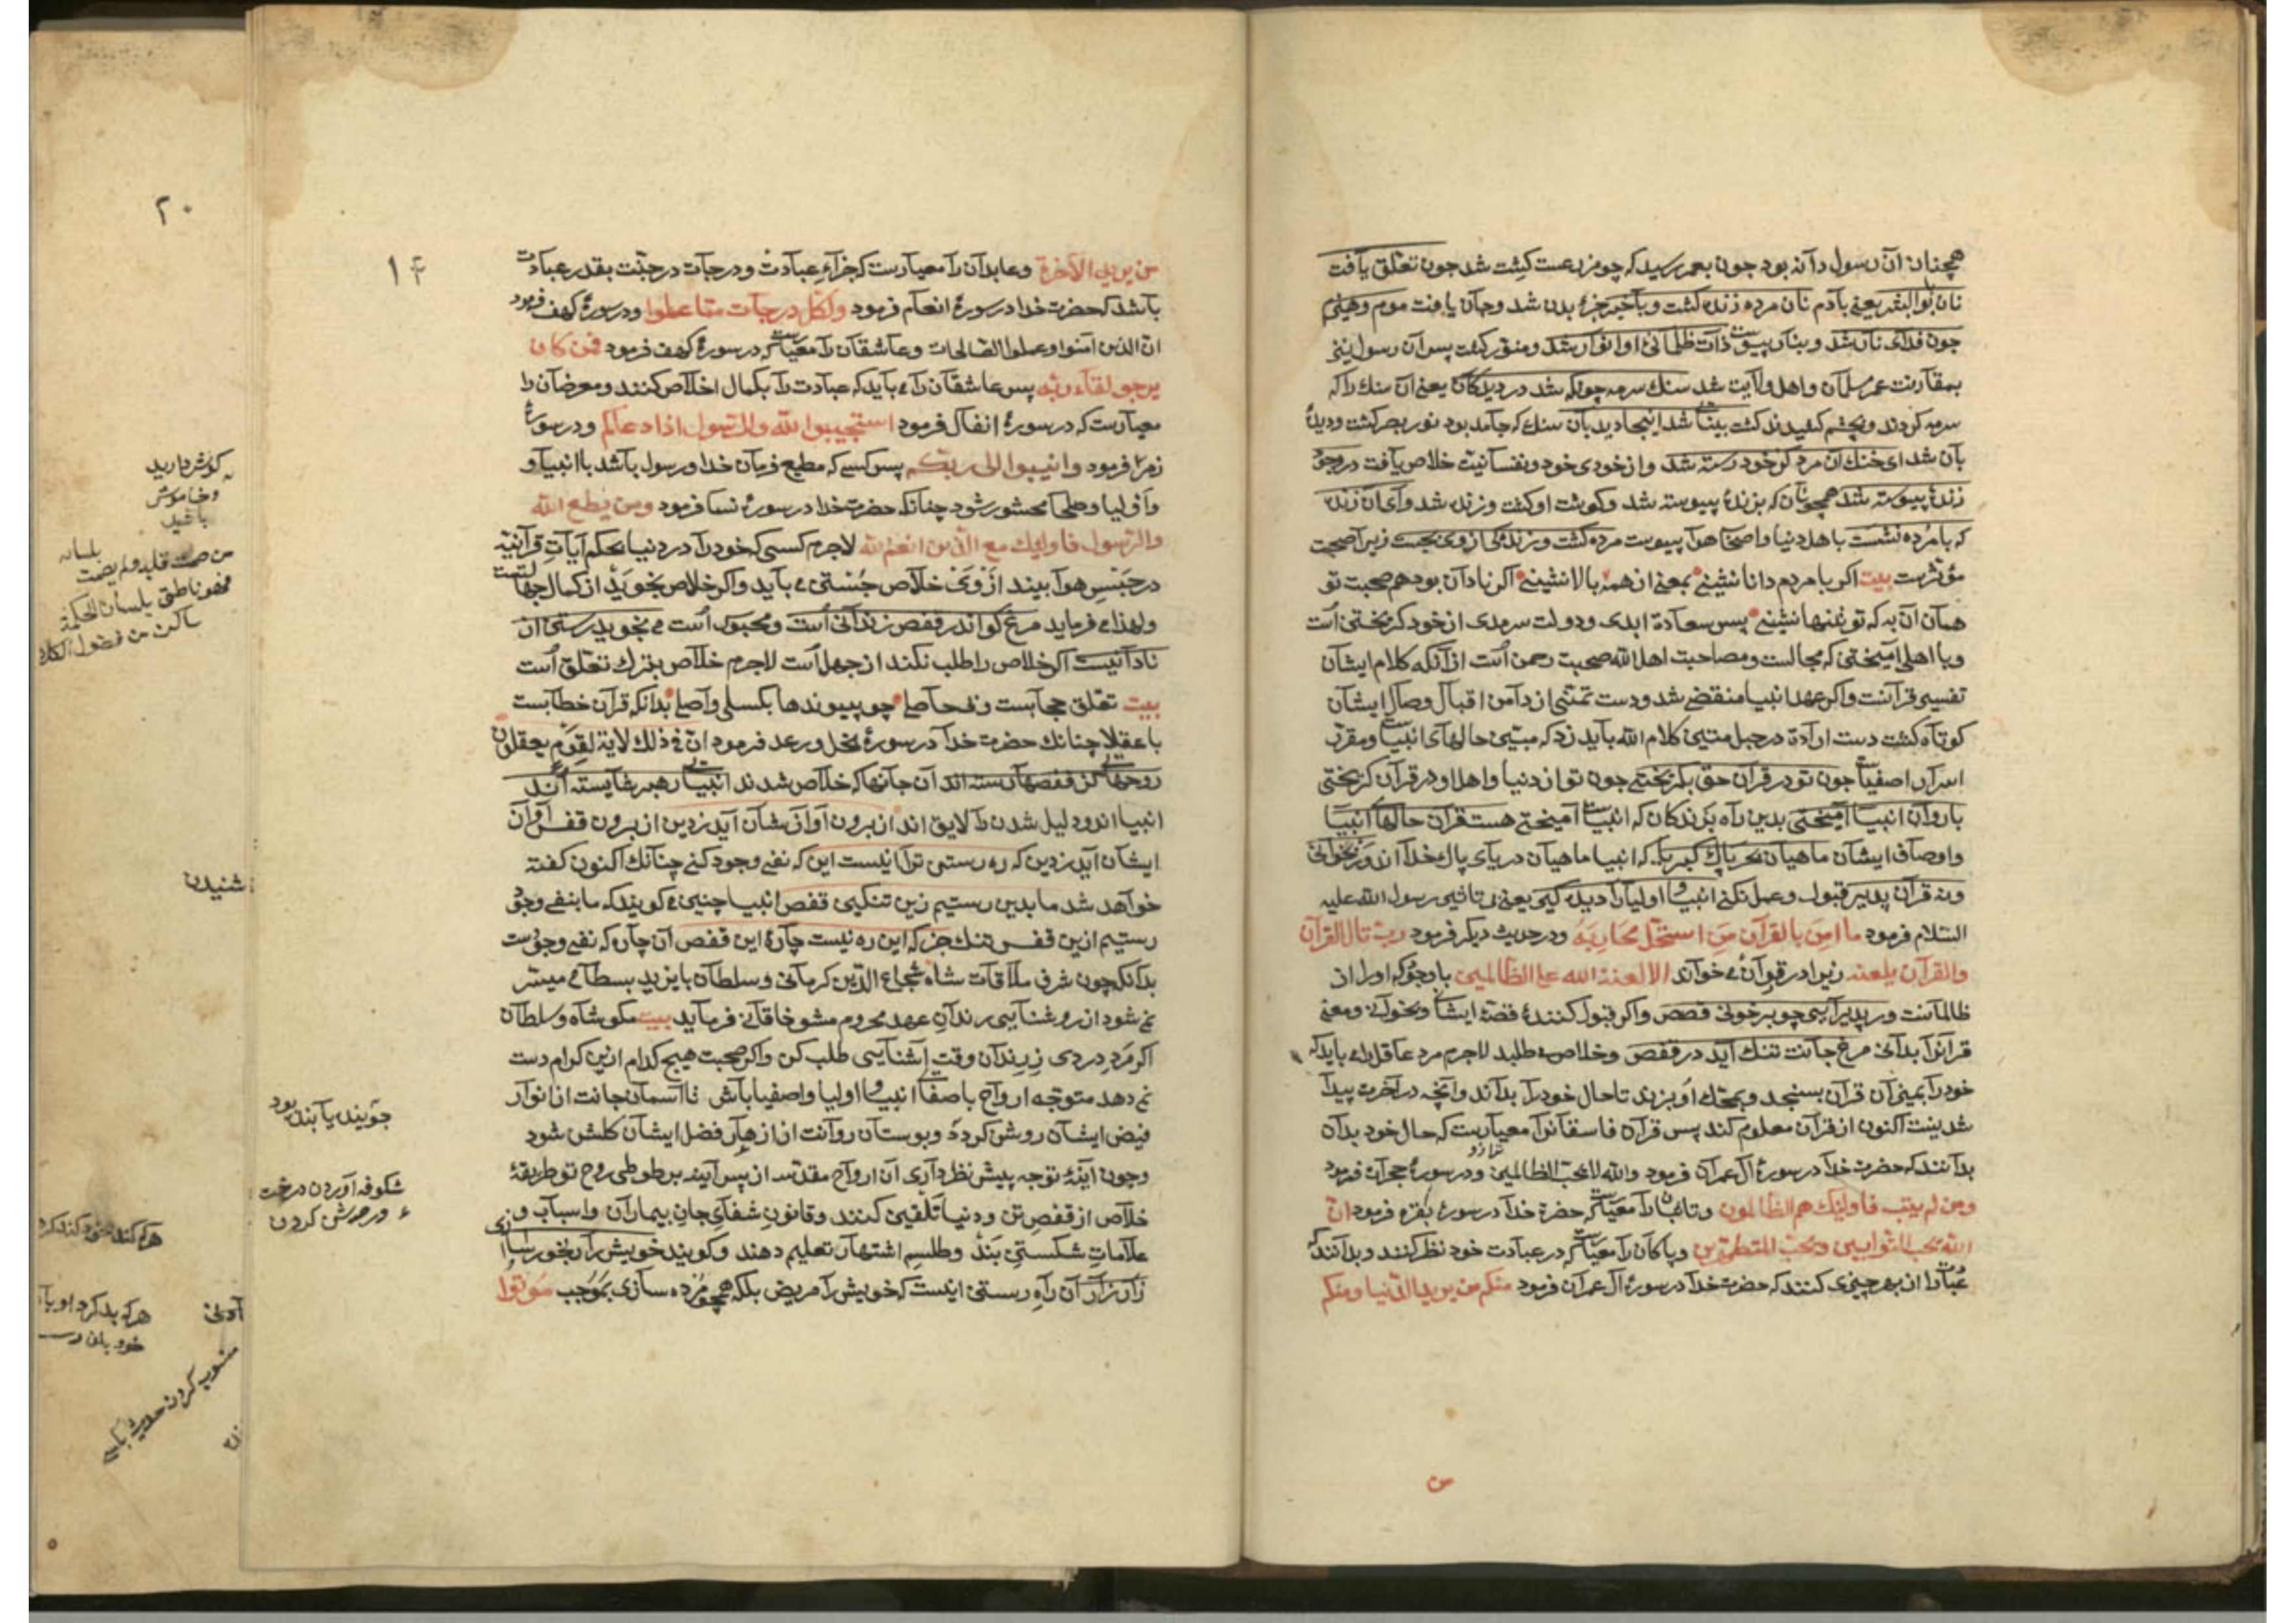 همچنان آن رسول دانه بود چون بعمر رسید که چو مزرعست کشت شد چون تعلق یافت
نان بوالبشر یعنی بآدم نان مرده زنده گشت و باخبر جزء بدن شد و جان یافت موم و هیزم
چون فدای نار شد و بنار پیوست ذات ظلمانئ او انوار شد و منور گشت پس آن رسول نیز
بمقارنت عمر مسلمان و اهل ولایت شد سنك سرمه چونکه شد در دیدگان یعنی آن سنك را که
سرمه کردند و بچشم کشیدند گشت بینائی شد اینجا دیدبان سنك که جامد بود نور بصر گشت و دیدهٔ
بان شد ای خنك آن مرد کز خود رسته شد و از خودی خود و نفسانیت خلاص یافت در وجود
زندهٔ پیوسته شد همچو نان که بزندهٔ پیوسته شد و گوشت او گشت و زنده شد وای آن زنده
که با مرده نشست با اهل دنیا و اصحاب هوا پیوست مرده گشت و زندگی از وی بجست زیرا صحبت
مؤثرست بیت اکر با مردم دانا نشینی بمعنی از همه بالا نشینی اکر نادان بود هم صحبت تو
همان آن به که تو تنها نشینی پس سعادة ابدی و دولت سرمدی از خود گریختی است
و با اهلی آمیختی که مجالست و مصاحبت اهل الله صحبت رحمن است از آنکه کلام ایشان
تفسیر قرآنست واکر عهد انبیا منقضی شد و دست تمتنی از دامن اقبال وصال ایشان
کوتاه گشت دست ارادة در حبل متین کلام الله باید زد که مبین حالهای انبیاست و مقرر
اسرار اصفیا چون تو در قرآن حق بگریختی چون تو از دنیا و اهل او در قرآن گریختی
با روان انبیا آمیختی بدین راه برندگان که انبیاست آمیختی هست قرآن حالهاء انبیا
و اوصاف ایشان ماهیان بحر پاك کبریا که انبیا ماهیان دریای پاك خدا اند ور بخوانی
و نه قرآن پذیر قبول و عمل نکنی انبیا و اولیا را دیده گیر یعنی بی تاثیر رسول الله علیه
السلام فرمود ما امن بالقرآن من استحل محاربه و در حدیث دیگر فرمود رب تال القرآن
والقرآن یلعنه زیرا در قرآن می خواند الا لعنة الله علی الظالمین با وجود که او از
ظالمانست ور پذیرایی چو بر خوانی قصص واکر قبول کنندهٔ قصهٔ ایشان و بخوانی و معنی
قرآنرا بدانی مرغ جانت تنك آید در قفص و خلاص می طلبد لاجرم مرد عاقل را می باید که
خود را بمیزان قرآن بسنجد و بمحك او بزند تا حال خود را بداند و آنچه در آخرت پیدا
شدنیست اکنون از قرآن معلوم کند پس قرآن فاسقانرا معیارست که حال خود بدان
ترازو
بدانند که حضرت خدا در سورهٔ آل عمران فرمود والله لا یحب الظالمین و در سورهٔ حجرات فرمود
ومن لم یتب فاولئك هم الظالمون و تائبان را معیارست که حضرة خدا در سورهٔ بقره فرمود ان
الله یحب التوابین ویحب المتطهرین و پاکان را معیارست که در عبادت خود نظر کنند و بدانند که
عبادت را از بهر چیزی کنند که حضرت خدا در سورهٔ آل عمران فرمود منکم من یرید الدنیا ومنکم
من
من یرید الآخرة و عابدان را معیارست که جزاء عبادت و درجات در جنت بقدر عبادت
۱۴
باشد که حضرت خدا در سورهٔ انعام فرمود ولکل درجات مما عملوا و در سورهٔ کهف فرمود
ان الذین آمنوا وعملوا الصالحات و عاشقان را معیارست که در سورهٔ کهف فرمود فمن کان
یرجو لقاء ربه پس عاشقان را می باید که عبادت را بکمال اخلاص کنند و معرضان را
معیارست که در سورهٔ انفال فرمود استجیبوا لله وللرسول اذا دعاکم و در سورهٔ
زمر فرمود وانیبوا الی ربکم پس کسی که مطیع فرمان خدا و رسول باشد با انبیا و
و اولیا و صلحا محشور شود چنانکه حضرت خدا در سورهٔ نسا فرمود ومن یطع الله
والرسول فاولئك مع الذین انعم الله لاجرم کسی که خود را در دنیا بحکم آیات قرآنیه
در حبس هوا بیند از وی خلاص جستن می باید واکر خلاص نجوید از کمال جهالتست
ولهذا می فرماید مرغ کو اندر قفص زندانی است و محبوس است می نجوید رستن از
نادانیست اکر خلاص را طلب نکند از جهل است لاجرم خلاص بترك تعلق است
بیت تعلق حجابست و بی حاصلی چو پیوندها بکسلی واصلی بدانکه قرآن خطابست
با عقلا چنانك حضرت خدا در سورهٔ نحل و رعد فرمود ان فی ذلك لآیة لقوم یعقلون
روحهایی کز قفصها رسته اند آن جانها که خلاص شدند انبیاء رهبر شایسته اند
انبیا اند و دلیل شدن را لایق اند از برون آواز شان آید ز دین از برون قفس آواز
ایشان آید ز دین که ره رستن ترا اینست این که نفی وجود کنی چنانك اکنون گفته
خواهد شد ما بدین رستیم زین تنگین قفص انبیا چنین می گویند که ما بنفی وجود
رستیم ازین قفس تنك جز که این ره نیست چارهٔ این قفص آن چاره که نفی وجودست
بدانکه چون شرف ملاقات شاه شجاع الدین کرمانی و سلطان بایزید بسطامی میسر
نمی شود از روشنایی رندان عهد محروم مشو خاقانی فرماید بیت مگو شاه و سلطان
اکر مرد دردی ز رندان وقت آشنایی طلب کن واکر صحبت هیچ کدام ازین کرام دست
نمی دهد متوجه ارواح باصفاء انبیا و اولیا و اصفیا باش تا آسمان جانت از انوار
فیض ایشان روشن گردد و بوستان روانت از ازهار فضل ایشان گلشن شود
و چون آینهٔ توجه پیش نظر داری آن ارواح مقدسه از پس آینه بر طوطی روح تو طریقهٔ
خلاص از قفص تن و دنیا تلقین کنند و قانون شفای جان بیماران و اسباب و
علامات شکستن بند و طلسم اشتهار تعلیم دهند و گویند خویش را رنجور سازی
زار زار آن راه رستن اینست که خویش را مریض بلکه همچو مرده سازی بموجب موتوا
جوینده یابنده بود
شکوفه آوردن درخت
۲۰
گوش دارید
و خاموش
باشید
شنیدن